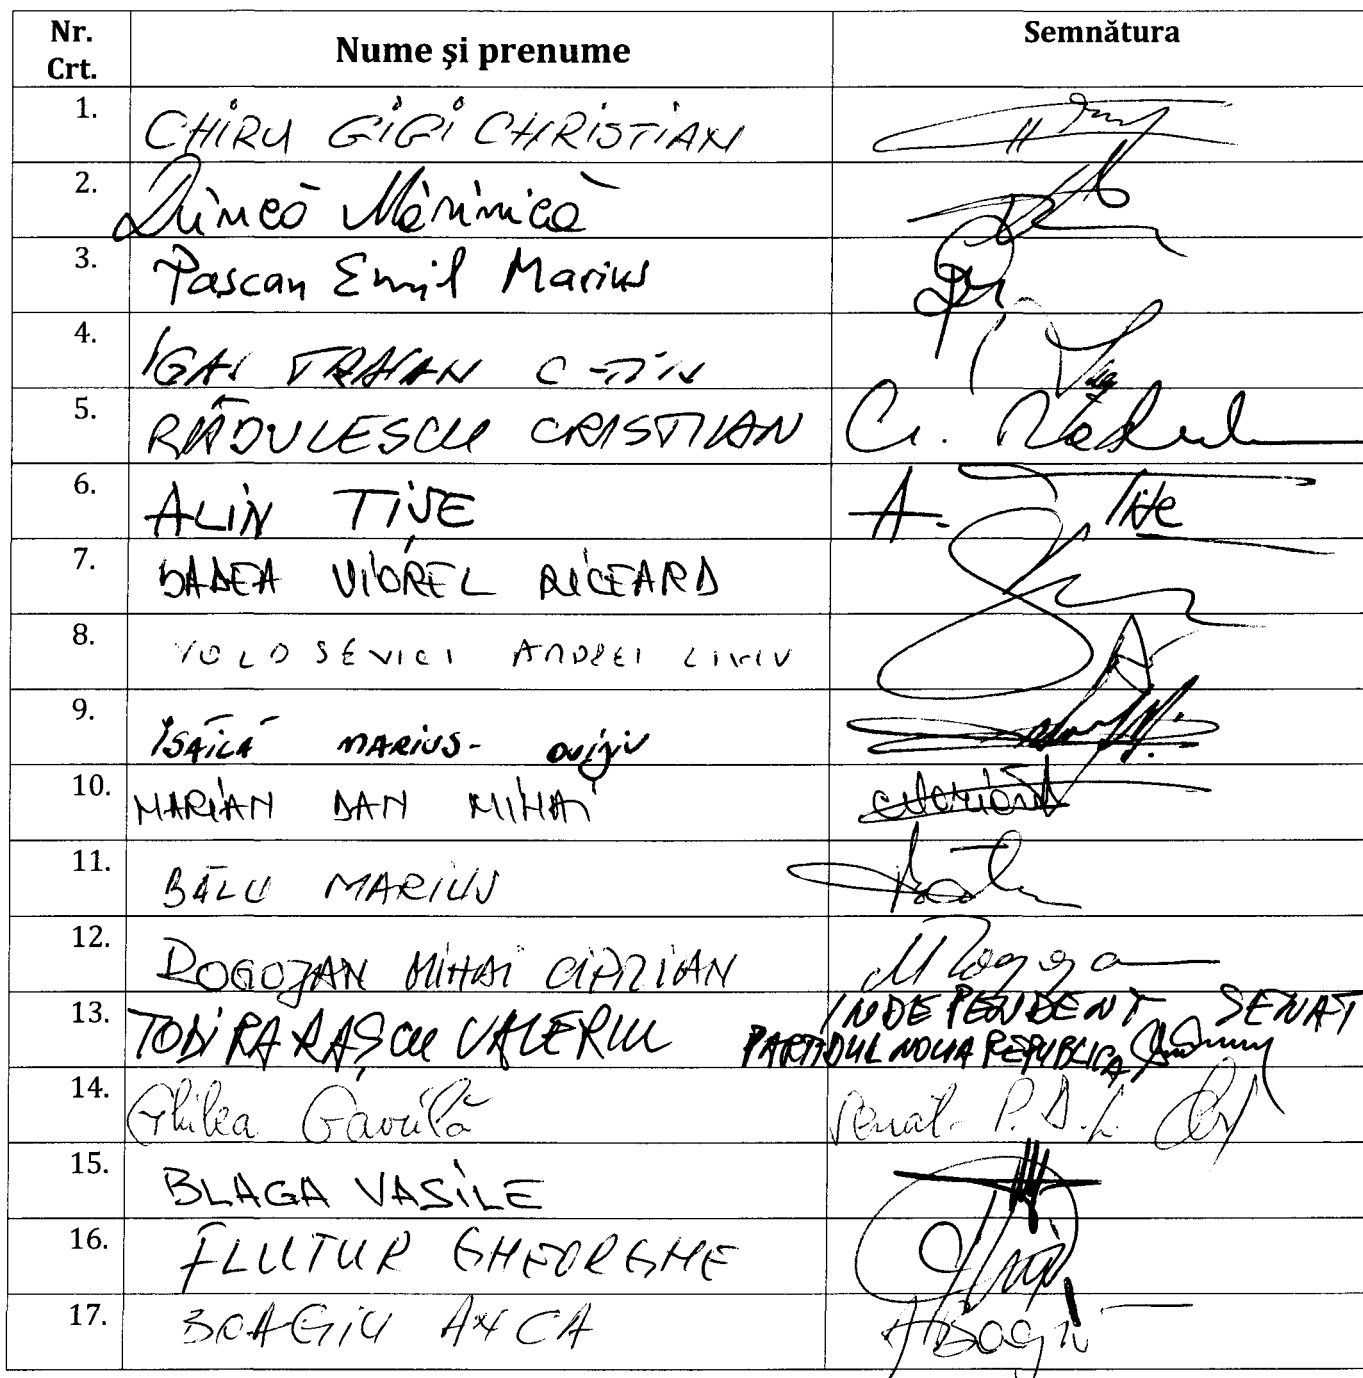 Nr. Crt. Nume și prenume Semnătura
1. CHIRU GIGI CHRISTIAN
2. Dincă Mărinică
3. Pascan Emil Marius
4. IGAȘ TRAIAN C-TIN
5. RĂDULESCU CRISTIAN Cr. Rădul
6. ALIN TIȘE A. Tișe
7. BADEA VIOREL RICEARD
8. VOLOSEVICI ANDREI LIVIU
9. ISĂILĂ MARIUS- OVIDIU
10. MARIAN DAN MIHAI
11. BĂLU MARIUS
12. ROGOJAN MIHAI CIPRIAN MRogojan
13. TODIRARAȘCU VALERIU INDEPENDENT SENAT
PARTIDUL NOUA REPUBLICA
14. Ghilea Gavrilă Senat. P.D.L.
15. BLAGA VASILE
16. FLUTUR GHEORGHE
17. BOAGIU ANCA ABoagiu